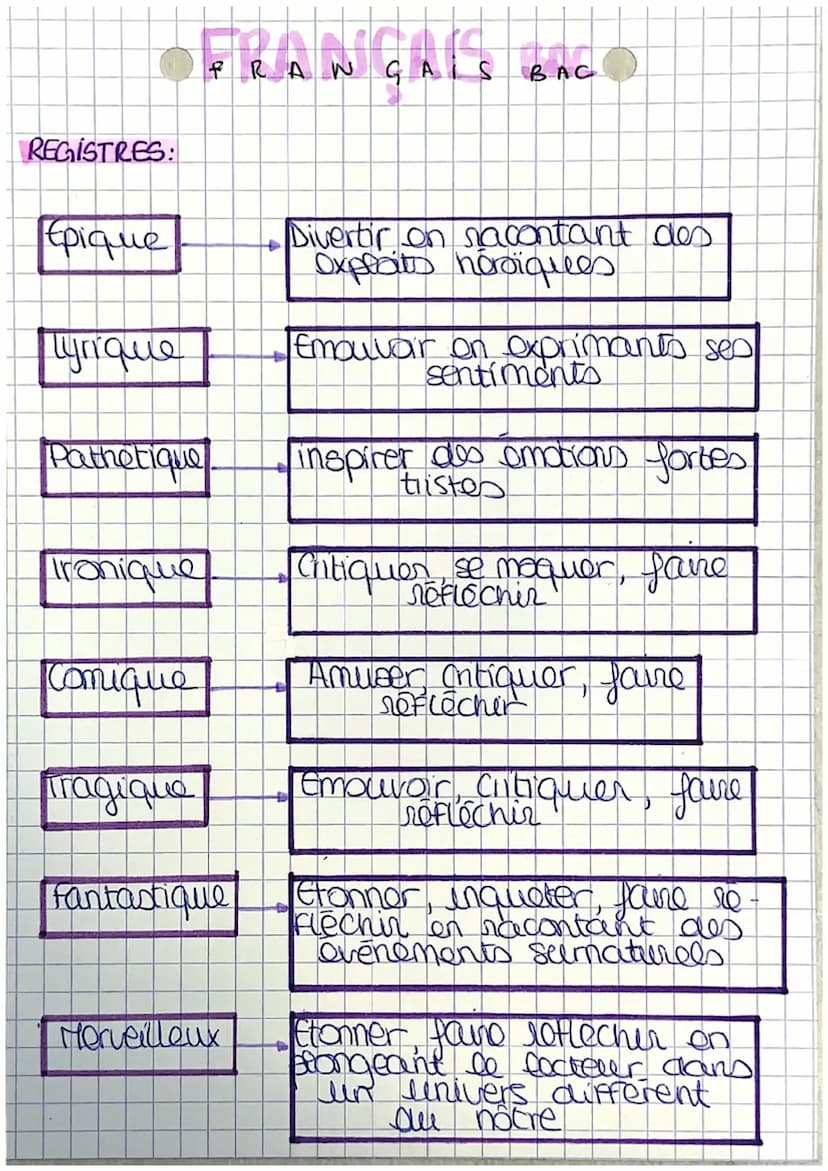 FRANÇAIS BAC
FRANÇAIS BAC
REGISTRES:
Épique
Divertir en racontant des
exploits héroïques
Lyrique
Emouvoir en exprimants ses
sentiments
Pathétique
inspirer des émotions fortes
tristes
Ironique
Critiquer, se moquer, faire
réfléchir
Comique
Amuser, critiquer, faire
réfléchir
Tragique
Emouvoir, critiquer, faire
réfléchir
Fantastique
Etonner, inquéter, faire ré-
fléchir en racontant des
événements surnaturels
Merveilleux
Etonner, faire réfléchir en
plongeant le lecteur dans
un univers différent
du nôtre